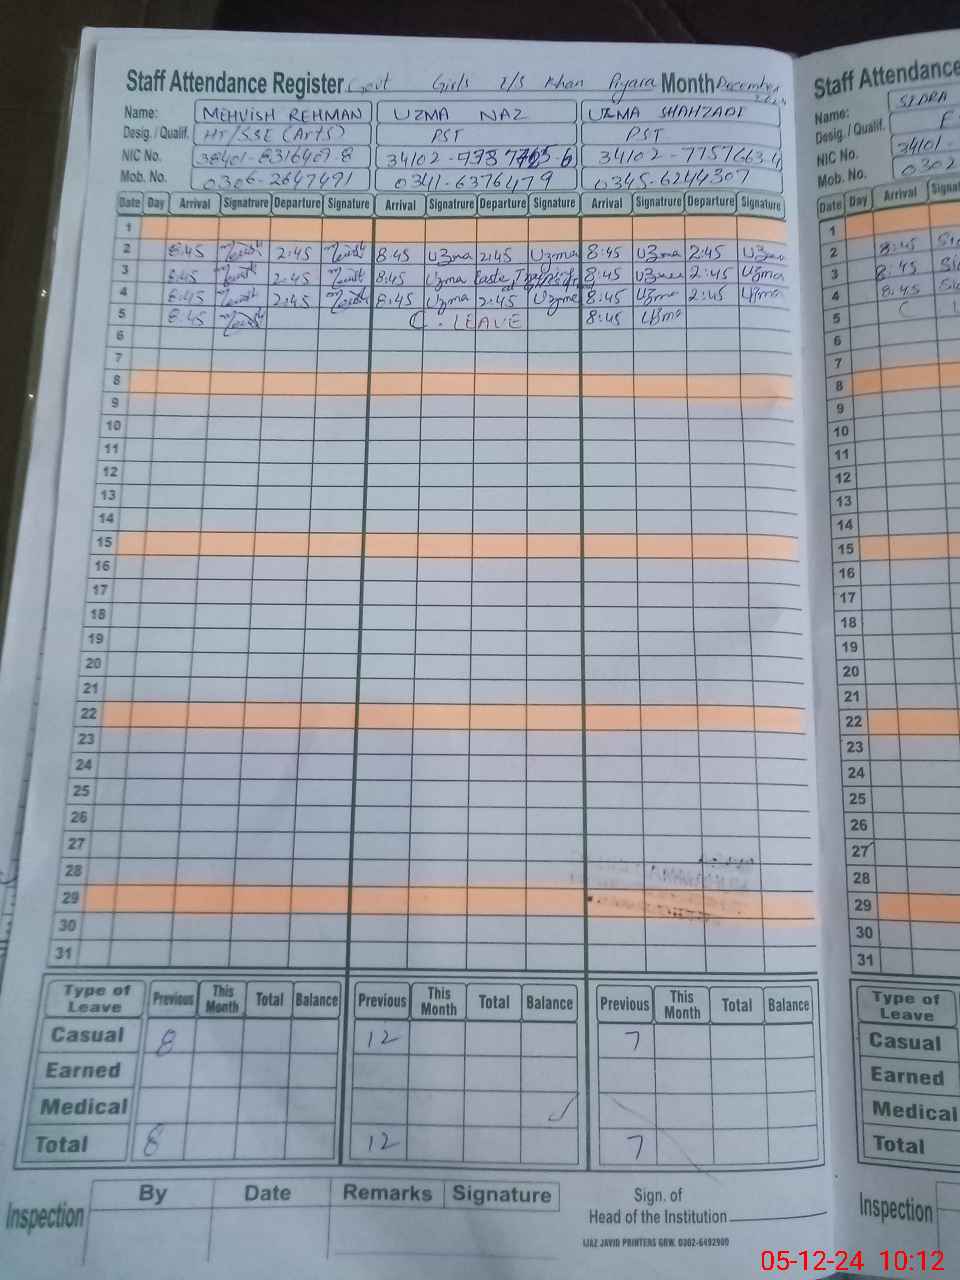 Staff Attendance Register Govt Girls E/S Khan Pyara Month December
Name: MEHVISH REHMAN UZMA NAZ UZMA SHAHZADI
Desig. / Qualif. HT/SSE (Arts) PST PST
NIC No. 34102-7757663-4
Mob. No. 0306-2647491 0341-6376479 0345-6244307
Date Day Arrival Signatrure Departure Signature Arrival Signatrure Departure Signature Arrival Signatrure Departure Signature
1
2 8:45 2:45 8:45 Uzma 2:45 Uzma 8:45 Uzma 2:45 Uzma
3 8:45 2:45 8:45 Uzma 8:45 Uzma 2:45 Uzma
4 8:45 2:45 8:45 Uzma 2:45 Uzma 8:45 Uzma 2:45 Uzma
5 8:45 C. LEAVE 8:45 Uzma
6
7
8
9
10
11
12
13
14
15
16
17
18
19
20
21
22
23
24
25
26
27
28
29
30
31
Type of Leave Previous This Month Total Balance Previous This Month Total Balance Previous This Month Total Balance
Casual 8 12 7
Earned
Medical
Total 8 12 7
Inspection By Date Remarks Signature
Sign. of
Head of the Institution
IJAZ JAVID PRINTERS GRW. 0302-6492900
Staff Attendance
Name: SIDRA
Desig. / Qualif.
NIC No. 34101-
Mob. No. 0302
Date Day Arrival
1
2 8:45
3 8:45
4 8:45
5
6
7
8
9
10
11
12
13
14
15
16
17
18
19
20
21
22
23
24
25
26
27
28
29
30
31
Type of Leave
Casual
Earned
Medical
Total
Inspection
05-12-24 10:12